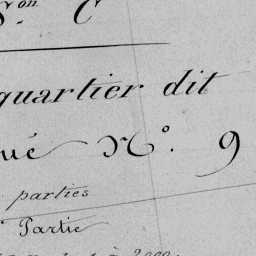 Son C
quartier dit
ué No. 9
parties
Partie
à 2000.